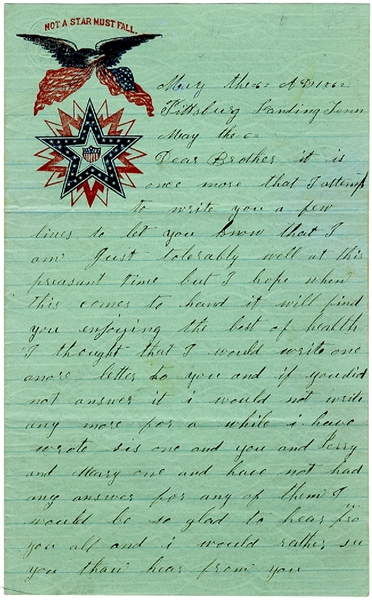 NOT A STAR MUST FALL.
May the 6 AD 1862
Pittsburg Landing Tenn
May the 6
Dear Brother it is
once more that I attemp
to write you a few
lines to let you know that I
am Just tolerably well at this
preasant time but I hope when
this comes to hand it will find
you enjoying the best of health
I thought that I would write one
more letter to you and if you did
not answer it i would not write
any more for a while i have
wrote sis one and you and
and Mary one and have not had
any answer for any of them I
would be so glad to hear fro
you all and i would rather see
you than hear from you